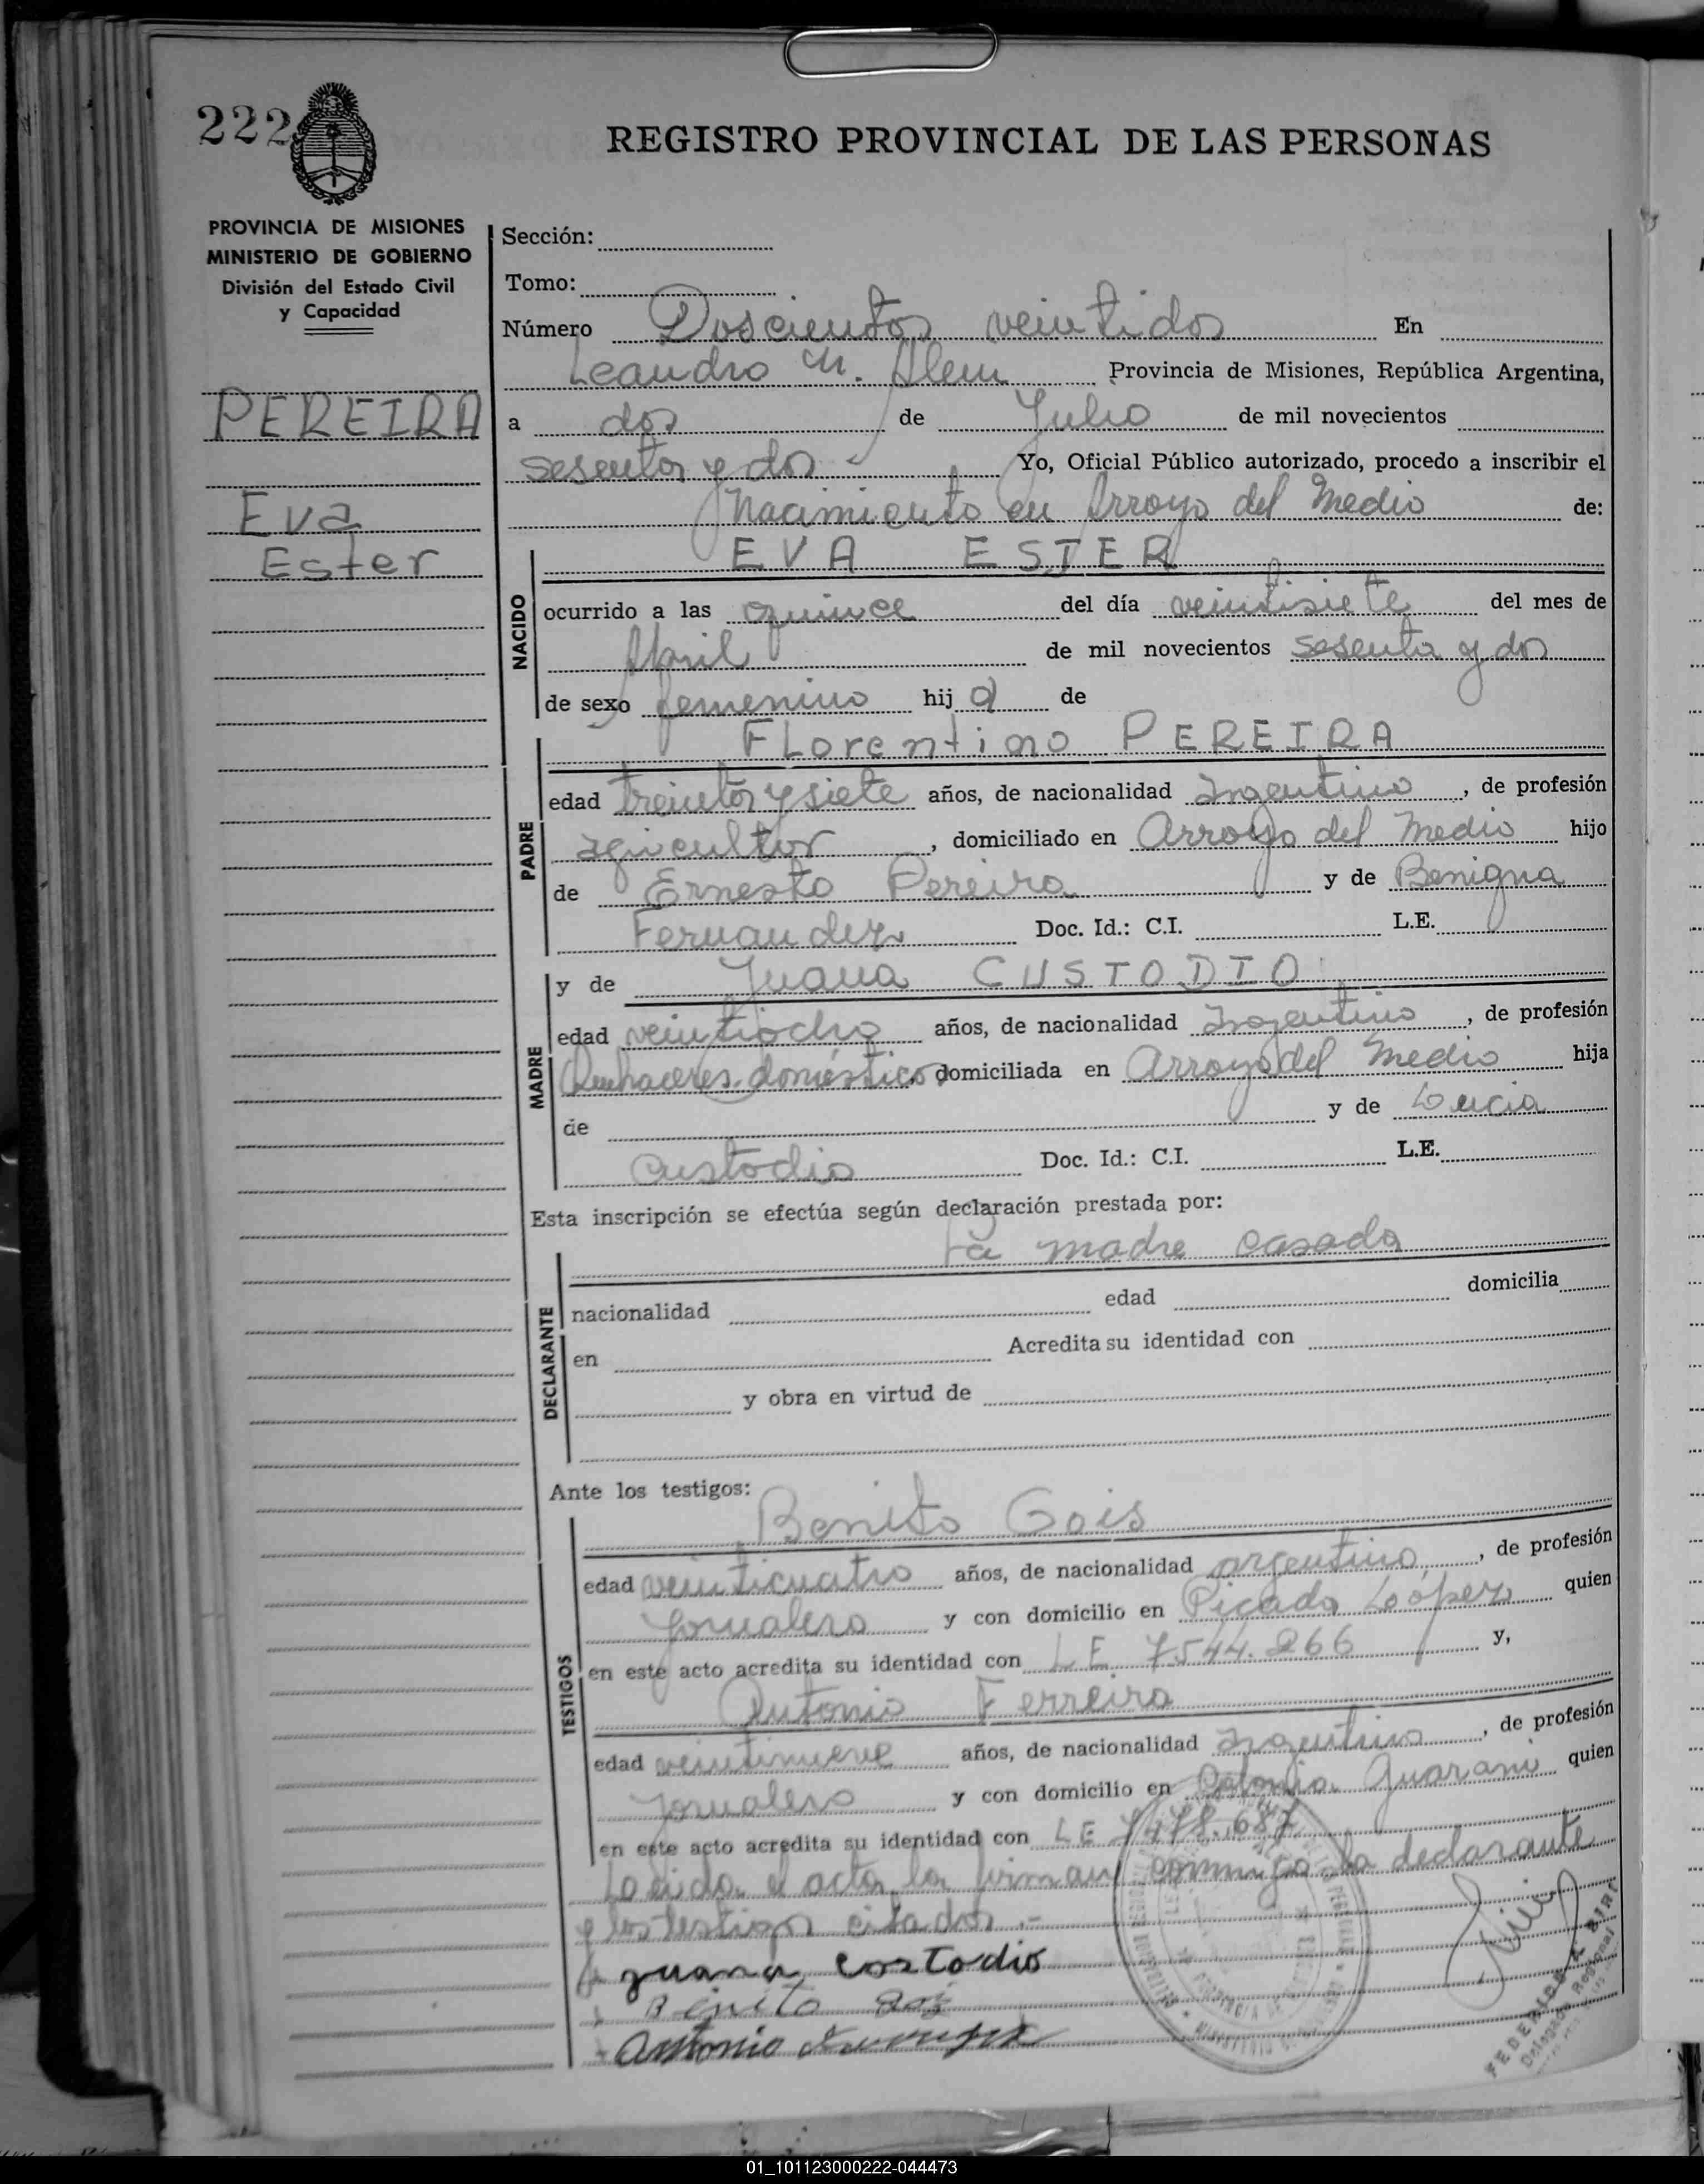 222
REGISTRO PROVINCIAL DE LAS PERSONAS
PROVINCIA DE MISIONES
MINISTERIO DE GOBIERNO
División del Estado Civil
y Capacidad
PEREIRA
Eva
Ester
Sección:
Tomo:
Número Doscientos veintidos En
Leandro N. Alem Provincia de Misiones, República Argentina,
a dos de Julio de mil novecientos
sesenta y dos Yo, Oficial Público autorizado, procedo a inscribir el
Nacimiento en Arroyo del Medio de:
NACIDO
EVA ESTER
ocurrido a las quince del día veintisiete del mes de
Abril de mil novecientos sesenta y dos
de sexo femenino hija de
PADRE
Florentino PEREIRA
edad treinta y siete años, de nacionalidad Argentino, de profesión
agricultor, domiciliado en Arroyo del Medio hijo
de Ernesto Pereira y de Benigna
Fernandez Doc. Id.: C.I. L.E.
MADRE
y de Juana CUSTODIO
edad veintiocho años, de nacionalidad Argentino, de profesión
Quehaceres domésticos, domiciliada en Arroyo del Medio hija
de y de Lucia
Custodio Doc. Id.: C.I. L.E.
Esta inscripción se efectúa según declaración prestada por:
DECLARANTE
La madre casada
nacionalidad edad domicilia
en Acredita su identidad con
y obra en virtud de
Ante los testigos:
TESTIGOS
Benito Gois
edad veinticuatro años, de nacionalidad argentino, de profesión
Jornalero y con domicilio en Picada López quien
en este acto acredita su identidad con LE 7544.266 y,
Antonio Ferreira
edad veintinueve años, de nacionalidad Argentino, de profesión
Jornalero y con domicilio en Colonia Guarani quien
en este acto acredita su identidad con LE 7478.687
Leida el acta, la firman conmigo la declarante
y los testigos citados.-
juana costodio
Benito
Antonio
FEDERICO
Delegado Regional
01_101123000222-044473